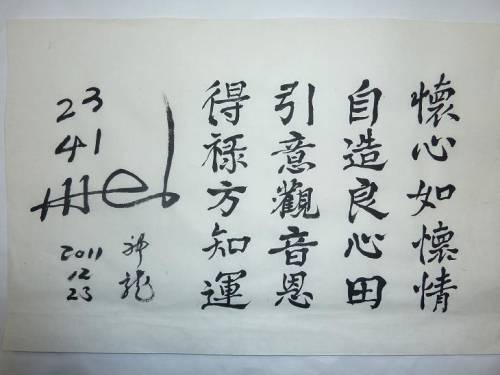 懷心如懷情
自造良心田
引意觀音恩
得祿方知運
神龍
23
41
2011
12
23